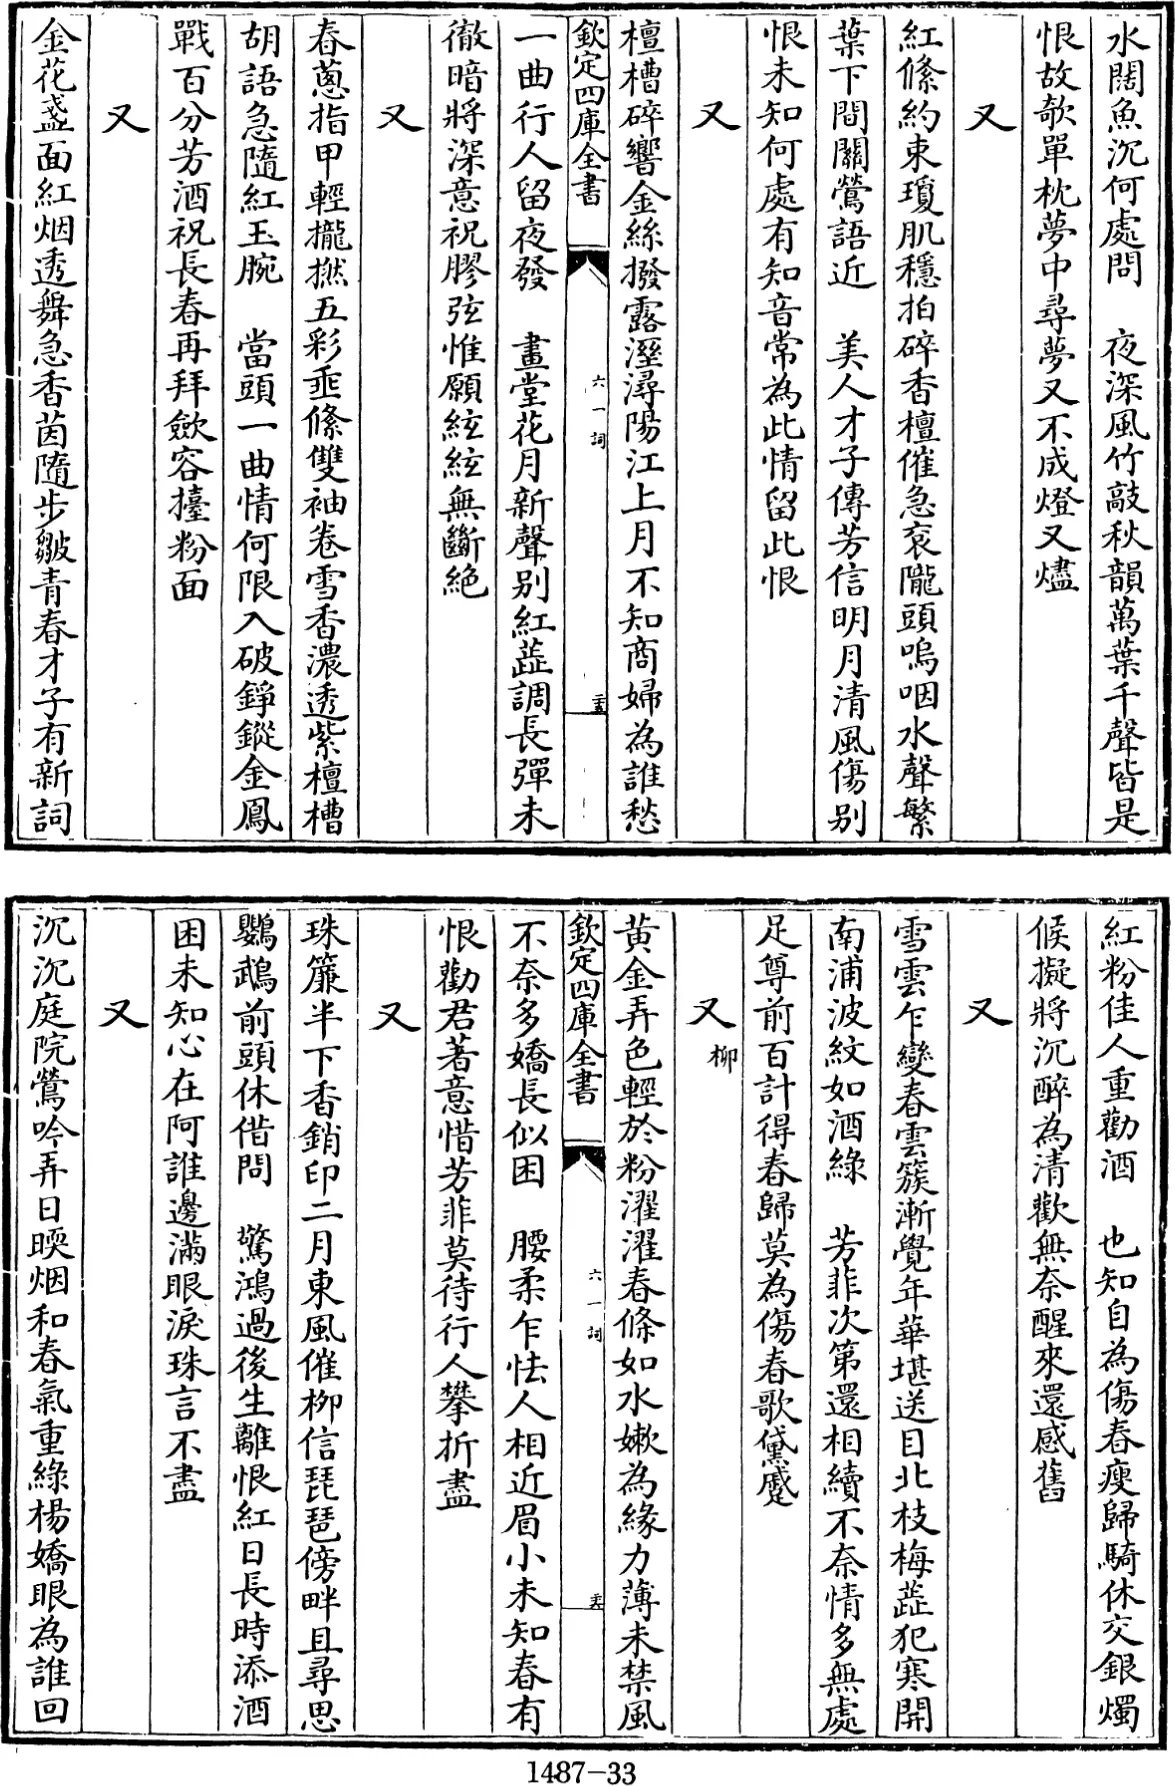 水闊魚沉何處問　夜深風竹敲秋韻萬葉千聲皆是
恨故欹單枕夢中尋夢又不成燈又燼
又
紅絛約束瓊肌穩拍碎香檀催急衮隴頭嗚咽水聲繁
葉下間關鶯語近　美人才子傳芳信明月清風傷别
恨未知何處有知音常為此情留此恨
又
檀槽碎響金絲撥露溼潯陽江上月不知商婦為誰愁
欽定四庫全書
六一詞
一曲行人留夜發　畫堂花月新聲别紅蘂調長彈未
徹暗將深意祝膠弦惟願絃絃無斷絶
又
春葱指甲輕攏撚五彩垂絛雙袖卷雪香濃透紫檀槽
胡語急隨紅玉腕　當頭一曲情何限入破錚鏦金鳳
戰百分芳酒祝長春再拜斂容擡粉面
又
金花盞面紅烟透舞急香茵隨步皺青春才子有新詞
紅粉佳人重勸酒　也知自為傷春瘦歸騎休交銀燭
候擬將沉醉為清歡無奈醒來還感舊
又
雪雲乍變春雲簇漸覺年華堪送目北枝梅蘂犯寒開
南浦波紋如酒綠　芳菲次第還相續不奈情多無處
足尊前百計得春歸莫為傷春歌黛蹙
又　柳
黄金弄色輕於粉濯濯春條如水嫩為緣力薄未禁風
欽定四庫全書
六一詞
不奈多嬌長似困　腰柔乍怯人相近眉小未知春有
恨勸君著意惜芳菲莫待行人攀折盡
又
珠簾半下香銷印二月東風催栁信琵琶傍畔且尋思
鸚鵡前頭休借問　驚鴻過後生離恨紅日長時添酒
困未知心在阿誰邊滿眼淚珠言不盡
又
沉沉庭院鶯吟弄日暖烟和春氣重綠楊嬌眼為誰回
1487-33